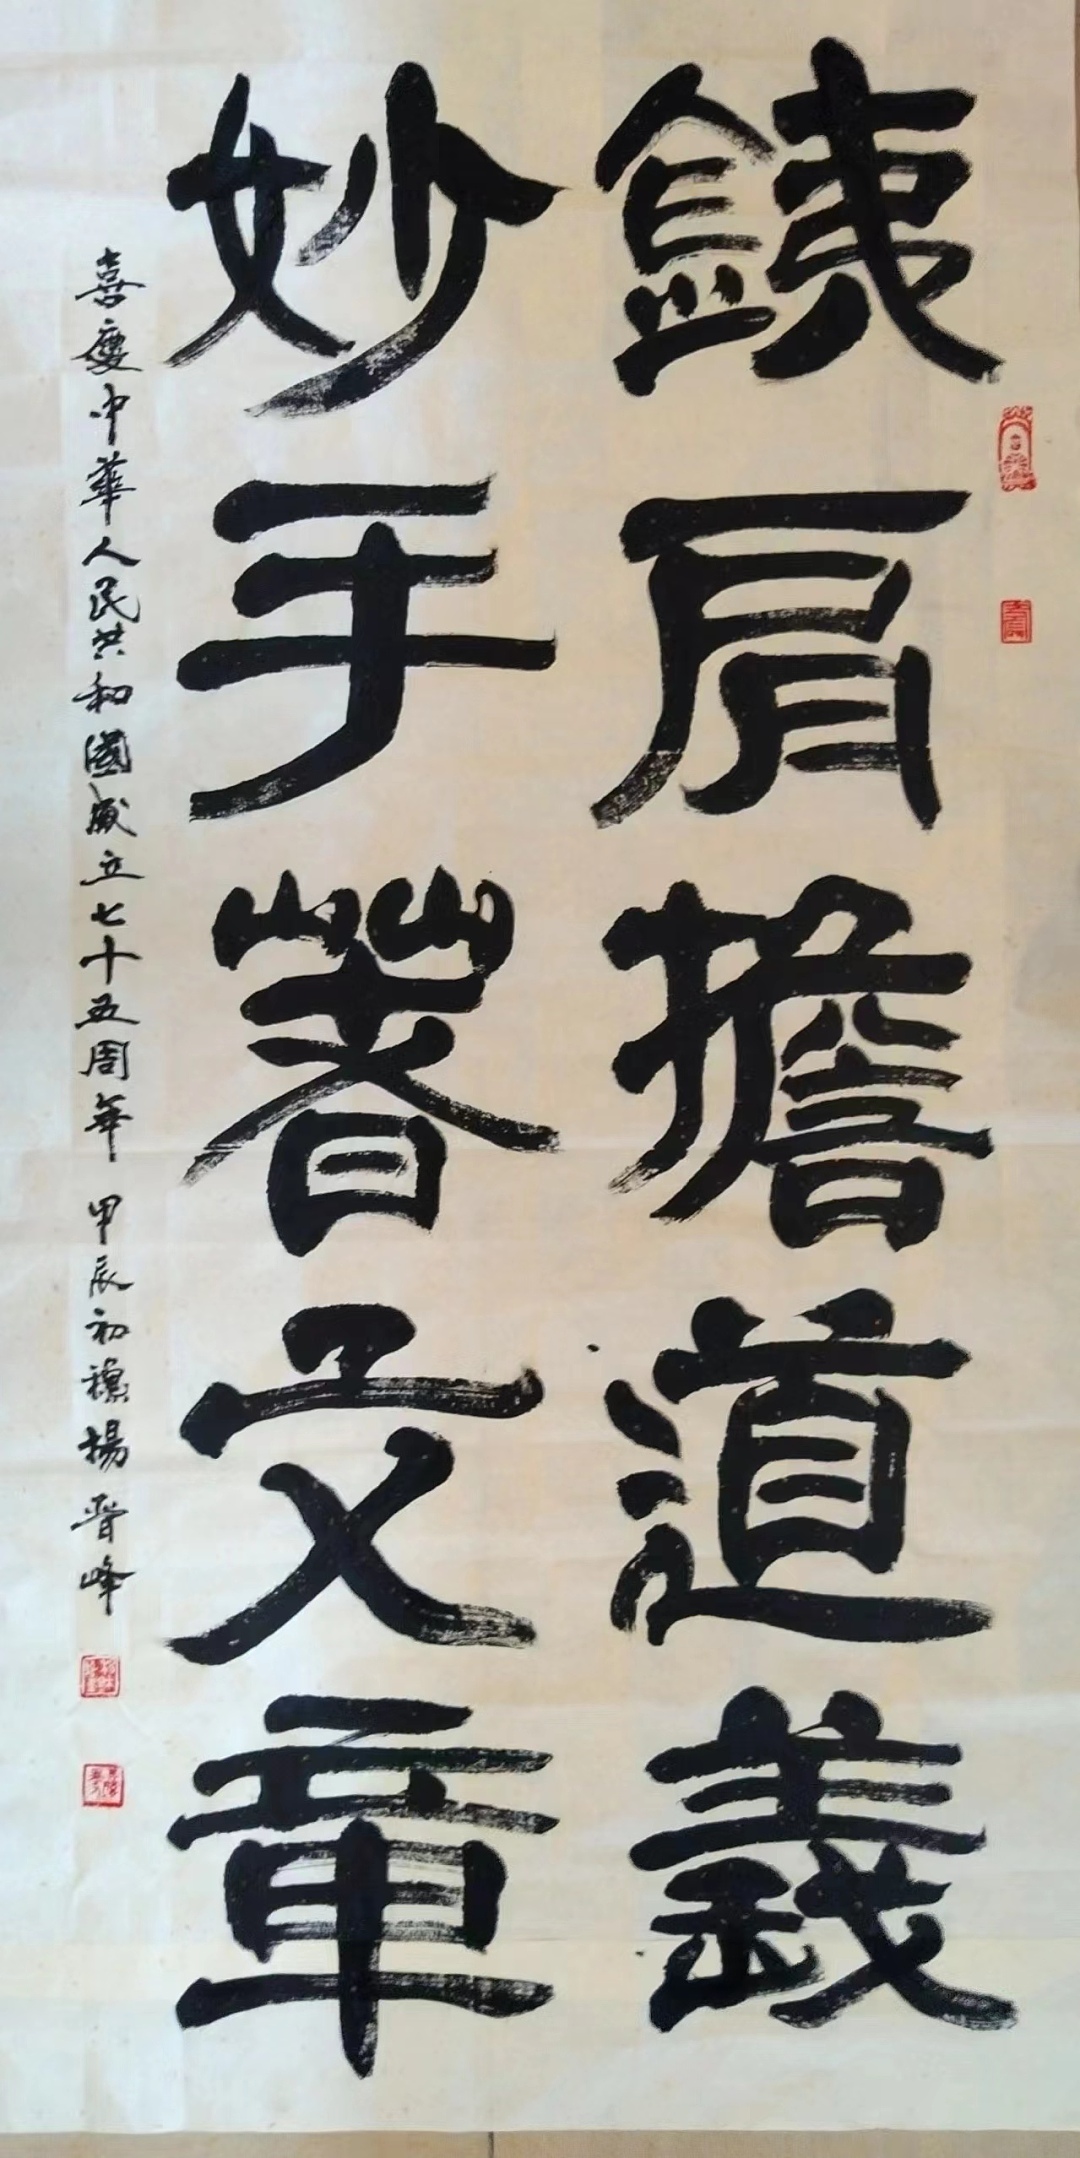 銕肩擔道義
妙手著文章
喜慶中華人民共和國成立七十五周年 甲辰初穐楊晋峰